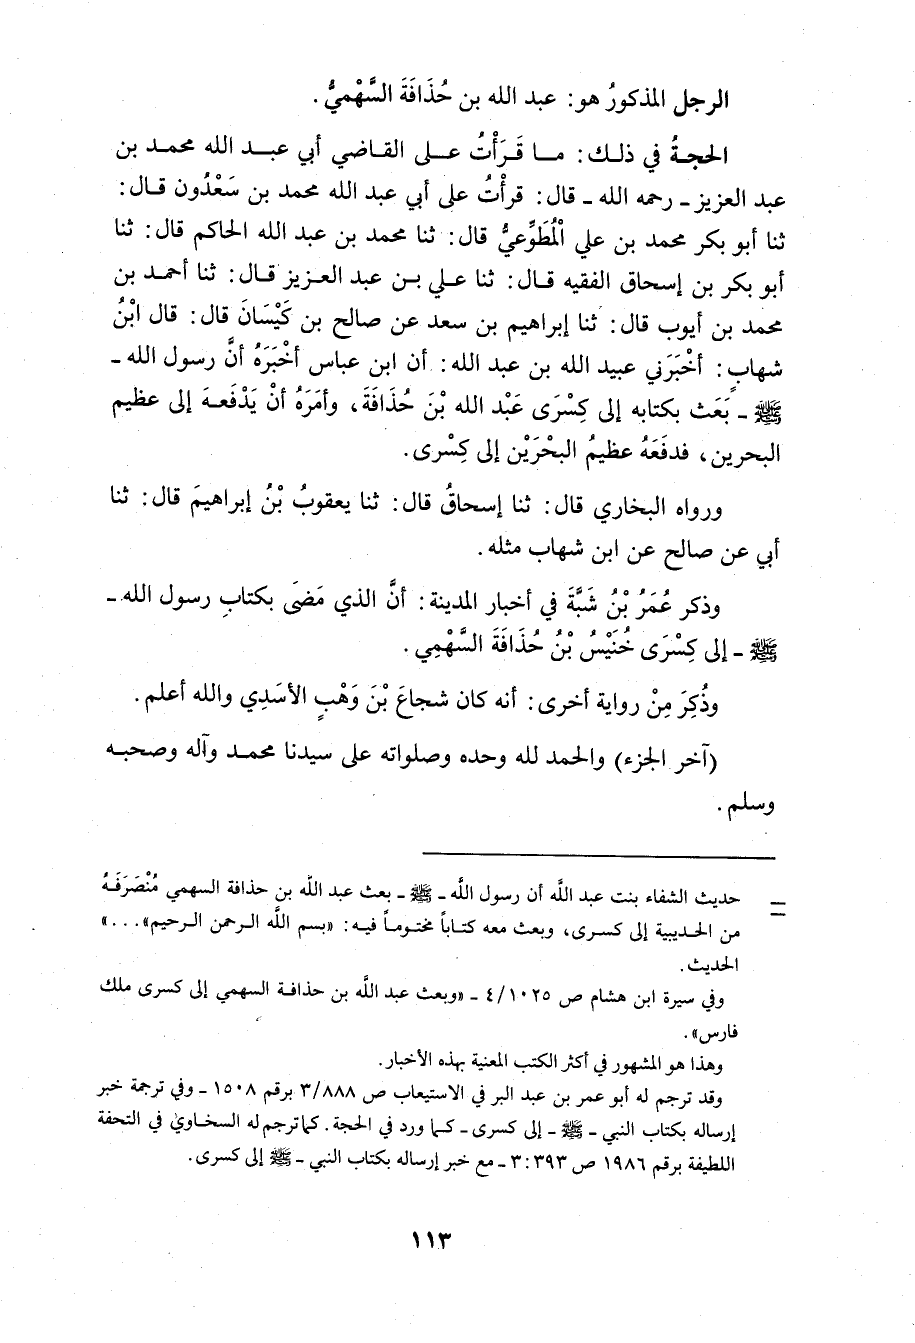 الرجل المذكورُ هو: عبد الله بن حُذَافَةَ السَّهْميُّ.
الحجةُ في ذلك: ما قَرَأْتُ على القاضي أبي عبد الله محمد بن
عبد العزيز ـ رحمه الله ـ قال: قرأْتُ على أبي عبد الله محمد بن سَعْدُون قال:
ثنا أبو بكر محمد بن علي الْمُطَوِّعيُّ قال: ثنا محمد بن عبد الله الحاكم قال: ثنا
أبو بكر بن إسحاق الفقيه قال: ثنا علي بن عبد العزيز قال: ثنا أحمد بن
محمد بن أيوب قال: ثنا إبراهيم بن سعد عن صالح بن كَيْسَانَ قال: قال ابْنُ
شهابٍ: أخْبَرَني عبيد الله بن عبد الله: أن ابن عباس أخْبَرَهُ أنَّ رسول الله ـ
ﷺ ـ بَعَث بكتابه إلى كِسْرَى عَبْد الله بْنَ حُذَافَةَ، وأمَرَهُ أنْ يَدْفَعهَ إلى عظيم
البحرين، فدفَعَهُ عظيمُ البحْرَيْن إلى كِسْرى.
ورواه البخاري قال: ثنا إسحاقُ قال: ثنا يعقوبُ بْنُ إبراهيمَ قال: ثنا
أبي عن صالح عن ابن شهاب مثله.
وذكر عُمَرُ بْنُ شَبَّةَ في أخبار المدينة: أنَّ الذي مَضَى بكتابِ رسول الله ـ
ﷺ ـ إلى كِسْرَى خُنَيْسُ بْنُ حُذَافَةَ السَّهْمِي.
وذُكِرَ مِنْ رواية أخرى: أنه كان شجاعَ بْنَ وَهْبٍ الأسَدِي والله أعلم.
(آخر الجزء) والحمد لله وحده وصلواته على سيدنا محمد وآله وصحبه
وسلم.
= حديث الشفاء بنت عبد اللَّه أن رسول اللَّه ـ ﷺ ـ بعث عبد اللَّه بن حذافة السهمي مُنْصَرَفَهُ
من الحديبية إلى كسرى، وبعث معه كتاباً مختوماً فيه: «بسم اللَّه الرحمن الرحيم»...»
الحديث.
وفي سيرة ابن هشام ص ٤/١٠٢٥ ـ «وبعث عبد اللَّه بن حذافة السهمي إلى كسرى ملك
فارس».
وهذا هو المشهور في أكثر الكتب المعنية بهذه الأخبار.
وقد ترجم له أبو عمر بن عبد البر في الاستيعاب ص ٣/٨٨٨ برقم ١٥٠٨ ـ وفي ترجمة خبر
إرساله بكتاب النبي ـ ﷺ ـ إلى كسرى ـ كما ورد في الحجة. كما ترجم له السخاوي في التحفة
اللطيفة برقم ١٩٨٦ ص ٣:٣٩٣ ـ مع خبر إرساله بكتاب النبي ـ ﷺ إلى كسرى.
١١٣